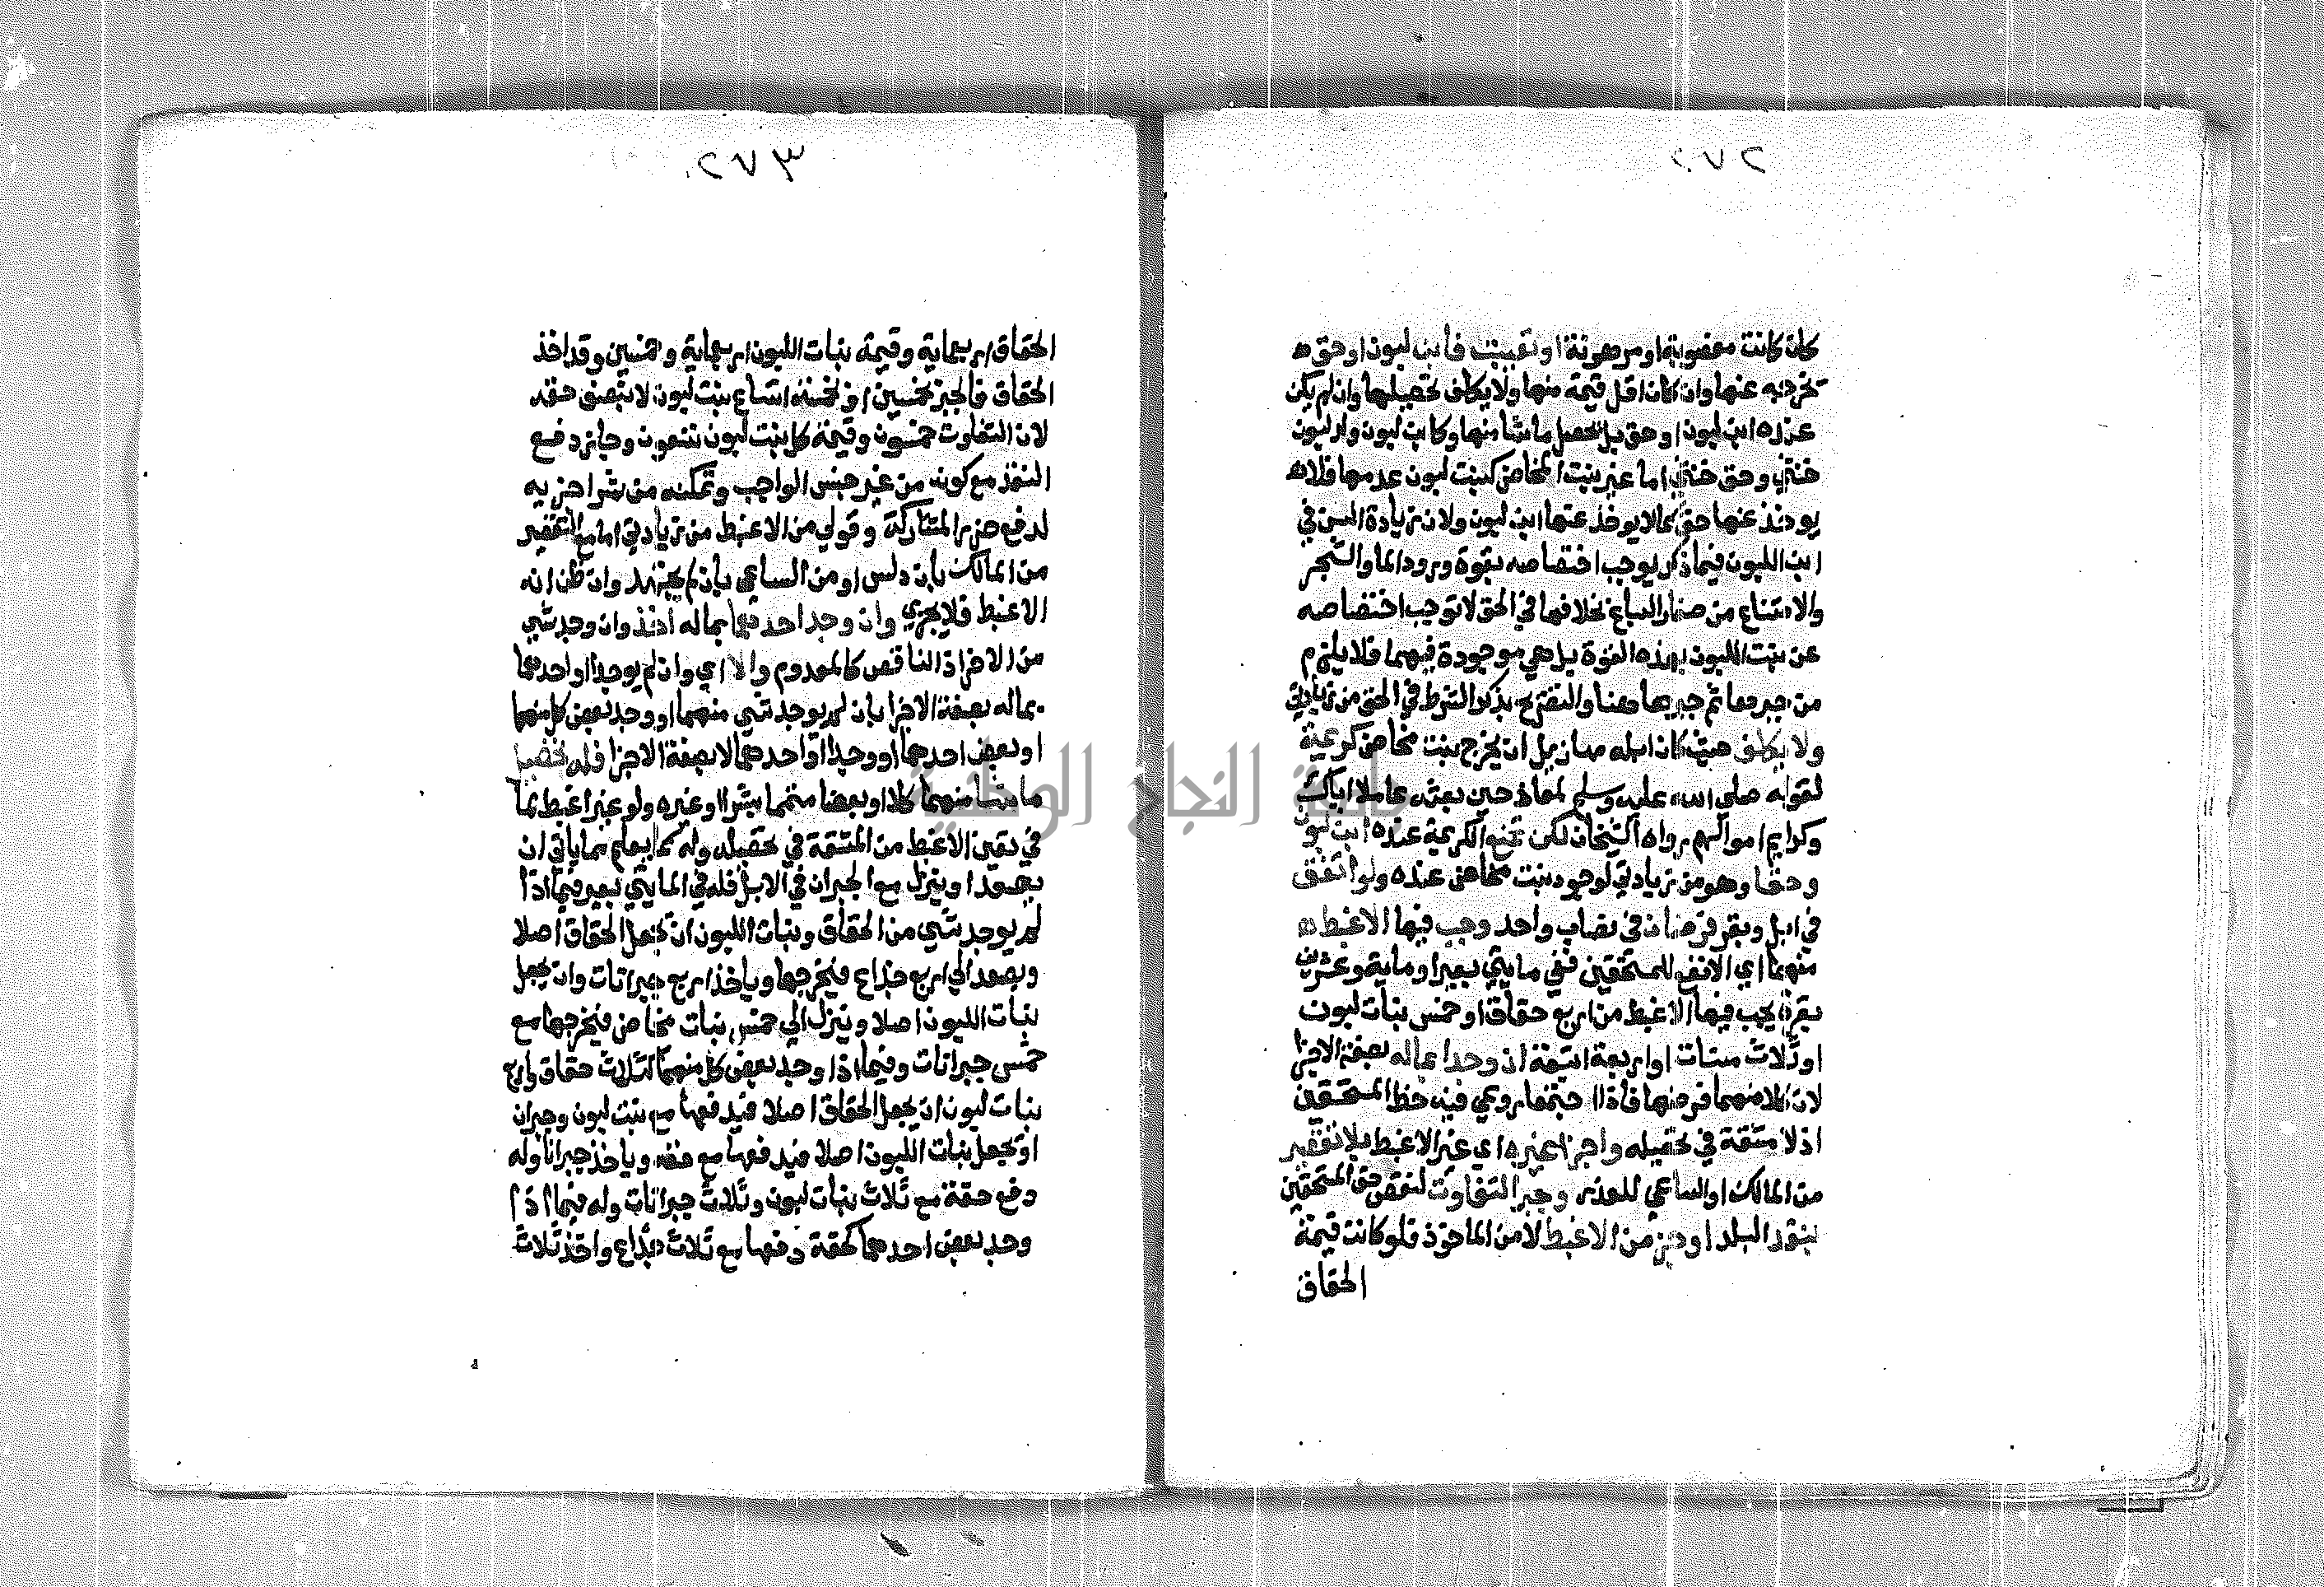 ٢٧٢
كان كانت مغصوبة او مرهونة او تعيبت فابن لبون او حق
يخرجه عنها وان كان اقل قيمة منها ولا يكلف تحصيلها وان لم يكن
عنده ابن لبون او حق بل تحصيل ما شا منها وكابن لبون ولد لبون
خنثي وحق خنثي اما غير بنت المخاض كبنت لبون عدمها فلا
يوخذ عنها حق كما لا يوخذ عنها ابن لبون ولان زيادة السن في
ابن اللبون فيما ذكر يوجب اختصاصه بقوة ورود الما والشجر
والامتناع من صغار السباع بخلافها في الحق لا توجب اختصاصه
عن بنت اللبون بهذه القوة بل هي موجودة فيهما فلا يلزم
من جبرها ثم جبرها هنا والتصريح بذكر الشرط في الحق من زيادتي
ولا يكلف حيث كان ابله مهازيل ان يخرج بنت مخاض كريمة
لقوله صلي الله عليه وسلم لمعاذ حين بعثه عاملا اياك
وكرايم اموالهم رواه الشيخان لكن تمنع الكريمة عنده ابن لبون
وحقا وهو من زيادتي لوجود بنت مخاض عنده ولو اتفق
في ابل وبقر فرضان في نصاب واحد وجب فيها الاغبط
منهما اي الانفع للمستحقين ففي مايتي بعير او ماية وعشرين
بقرة يجب فيها الاغبط من اربع حقاق او خمس بنات لبون
او ثلاث مسنات او اربعة اتبعة ان وجدا بماله بصفة الاجزا
لان كلا منهما فرضها فاذا اجتمعا روعي فيه حظ المستحقين
اذ لا مشقة في تحصيله واجزا غيره اي غير الاغبط بلا تقصير
من المالك او الساعي للعذر وجبر التفاوت لنقص حق المستحقين
بنقد البلد او جز من الاغبط لا من الماخوذ فلو كانت قيمة
الحقاق
٢٧٣
الحقاق اربعماية وقيمة بنات اللبون اربعماية وخمسين وقد اخذ
الحقاق فالجبر بخمسين او بخمسة اتساع بنت لبون لا بنصف حقه
لان التفاوت خمسون وقيمة كل بنت لبون تسعون وجاز دفع
النقد مع كونه من غير جنس الواجب وتمكنه من شرا جزيه
لدفع ضرر المشاركة وقولي من الاغبط من زيادتي اما مع التقصير
من المالك بان دلس او من الساعي بان لم يجتهد وان ظن انه
الاغبط فلا يجزي وان وجد احدهما بماله اخذ وان وجد شي
من الاخر اذ الناقص كالمعدوم والا اي وان لم يوجدا او احدهما
بماله بصفة الاجزا بان لم يوجد شي منهما او وجد بعض كل منهما
او بعض احدهما او وجدا او احدهما لا بصفة الاجزا فله تحصيل
ما يشا منهما كلا او بعضا متمما بشرا او غيره ولو غير اغبط لما
في تعين الاغبط من المشقة في تحصيله وله كما يعلم مما ياتي ان
يصعد او ينزل مع الجبران في الابل فله في المايتي بعير فيما اذا
لم يوجد شي من الحقاق وبنات اللبون ان يجعل الحقاق اصلا
ويصعد الي اربع جذاع فيخرجها وياخذ اربع جبرانات وان يجعل
بنات اللبون اصلا وينزل الي خمس بنات مخاض فيخرجها مع
خمس جبرانات وفيما اذا وجد بعض كل منهما كثلاث حقاق واربع
بنات لبون ان يجعل الحقاق اصلا فيدفعها مع بنت لبون وجبران
او يجعل بنات اللبون اصلا فيدفعها مع حقه وياخذ جبرانا وله
دفع حقة مع ثلاث بنات لبون وثلاث جبرانات وله فيما اذا
وجد بعض احدهما كحقة دفعها مع ثلاث جذاع واخذ ثلاث
جامعة النجاح الوطنية